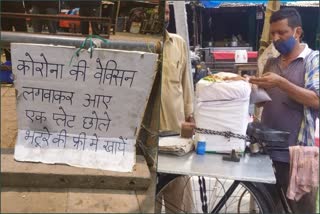 कोरोना की वैक्सिन
लगवाकर आए
एक प्लेट छोले
भटूरे की फ्री में खायें